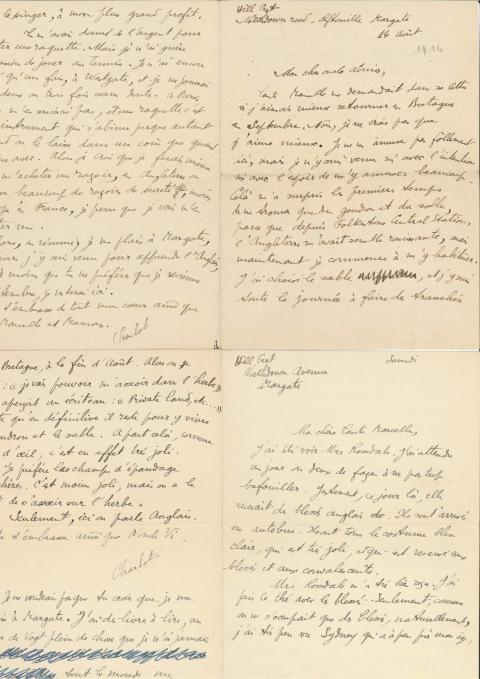 Hill Cot
Northdown road - Cliftonville Margate
14 Août
1914
Mon cher oncle Louis,
Tante Marcelle me demandait dans sa lettre
si j'aimais mieux retourner en Bretagne
en Septembre. Non, je ne crois pas que
j'aime mieux. Je ne m'amuse pas follement
ici, mais je n'y suis venu ni avec l'intention
ni avec l'espoir de m'y amuser beaucoup.
Cela m'a surpris les premiers temps
de ne trouver que du goudron et du sable,
parce que depuis Folkstone Central Station,
l'Angleterre m'avait semblé ravissante, mais
maintenant je commence à m'y habituer.
J'ai choisi le sable et j'y suis
toute la journée à faire de tranchés
épinger, à mon plus grand profit.
Tu m'avais donné de l'argent pour
une raquette. Mais je n'ai guère
de jouer au tennis. Je n'ai encore
qu'un fou, à Westgate, et je ne jouerai
deux ou trois fois sans doute. A Paris
m'en servirai pas, et une raquette c'est
instrument qui s'abîme presque autant
on le laisse dans un coin que quand
avec. Alors je crois que je ferais mieux
m'acheter un rasoir, en Angleterre on
beaucoup de rasoirs de sureté, moins
qu'en France, je pense que je vais m'en
un.
en résumé, je me plais à Margate,
j'y suis venu pour apprendre l'Anglais,
à moins que tu ne préfères que je revienne
septembre, je resterai ici.
t'embrasse de tout mon coeur ainsi que
Marcelle et Maman.
Charlot
Hill Cot
Northdown Avenue
Margate
Samedi
Ma chère Tante Marcelle,
J'ai été voir Mrs Rosedale. J'ai attendu
un jour ou deux de façon à ne pas trop
bafouiller. Justement, ce jour là, elle
recevait des blessés anglais. Ils ont arrivé
en autobus. Ils ont tous le costume bleu
claire, qui est très joli, et qui est reservé aux
blessés et aux convalescents.
Mrs Rosedale m'a très bien reçu. J'ai
pris le thé avec les blessés. Seulement, comme
on ne s'occupait que des blessés, naturellement,
j'ai très peu vu Sydney qui a à peu près mon âge,
Bretagne, à la fin d'Août. Alors on se
: "je vais pouvoir m'asseoir dans l'herbe"
aperçoit un écriteau : "Private land, etc..."
qu'en définitive il reste pour y vivre
goudron et le sable. A part cela, comme
d'oeil, c'est en effet très joli.
Je préfère les champs d'épandage
C'est moins joli, mais on a le
de s'asseoir sur l'herbe.
Seulement, ici on parle Anglais.
t'embrasse ainsi que
Charlot
Je ne voudrais pas que tu crois que je me
à Margate. J'ai de livre à lire, un
de Vogt plein de chose que je n'ai jamais
tout le monde me